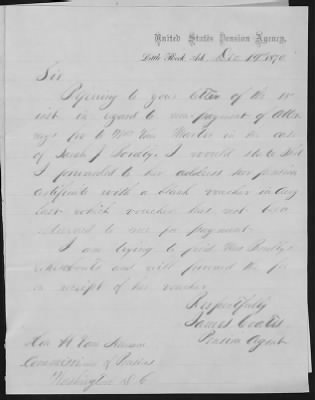 United States Pension Agency,
Little Rock, Ark. Dec 19th 1870
Sir
Referring to your letter of the 15
inst. in regard to non-payment of Attor
neys fee to Wm Van in the case
of Sarah J. I would state that
I forwarded to her address her pension
Certificate with a blank voucher in Aug
last which voucher has not been
returned to me for payment.
I am trying to find Mrs
whereabouts and will forward the fee
on receipt of her voucher
Respectfully
James Coates
Pension Agent
Hon H Van Aernam
Commissioner of Pensions
Washington D.C